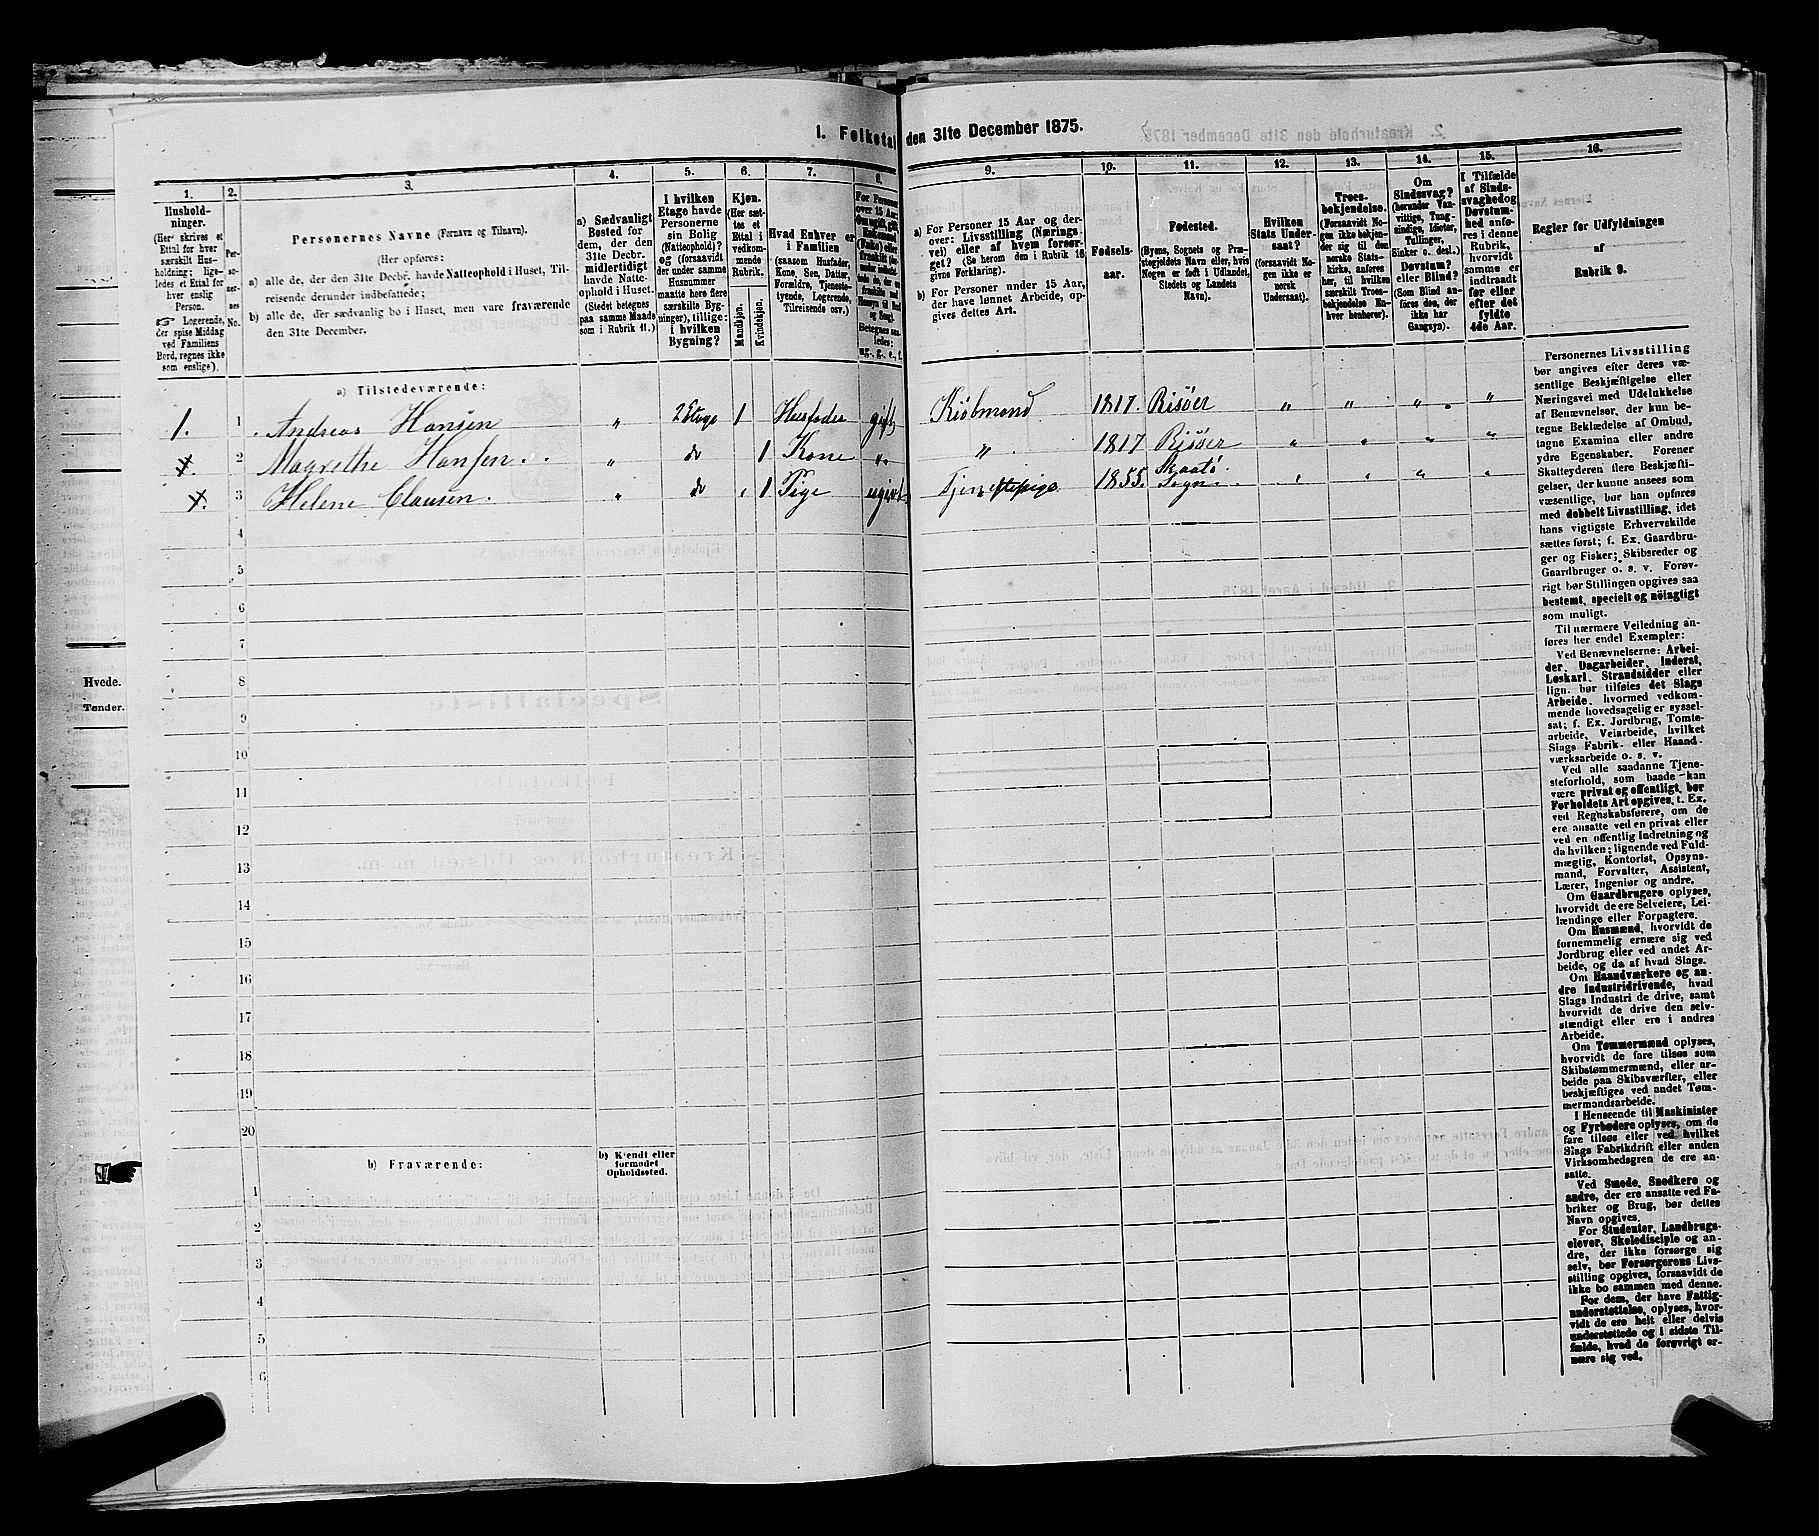 1. Folketal den 31te December 1875.
1. 2. 3. 4. 5. 6. 7. 8. 9. 10. 11. 12. 13. 14. 15. 16.
Hushold-
ninger.
(Her skrives et
Ettal for hver
særskilt Hus-
holdning; lige-
ledes et Ettal for
hver enslig
Person.
☞ Logerende,
der spise Middag
ved Familiens
Bord, regnes ikke
som enslige).
Per-
so-
ner-
nes
No.
Personernes Navne (Fornavn og Tilnavn).
(Her opføres:
a) alle de, der den 31te Decbr. havde Natteophold i Huset, Til-
reisende derunder indbefattede;
b) alle de, der sædvanlig bo i Huset, men vare fraværende
den 31te December.
a) Sædvanligt
Bosted for
dem, der den
31te Decbr.
midlertidigt
havde Natte-
ophold i Huset.
(Stedet betegnes
paa samme Maade
som i Rubrik 11.)
I hvilken
Etage havde
Personerne
sin Bolig
(Natteophold)?
og (forsaavidt
der under samme
Husnummer
maatte høre flere
særskilte Byg-
ninger), tillige:
i hvilken
Bygning?
Kjøn.
(Her sæt-
tes et
Ettal i
vedkom-
mende
Rubrik.
Mandkjøn.
Kvindekjøn.
Hvad Enhver er
i Familien
(saasom Husfader,
Kone, Søn, Datter,
Forældre, Tjeneste-
tyende, Logerende,
Tilreisende osv.)
For Personer
over 15 Aar:
Betegnes saa-
ledes:
ug., g., e., f.
a) For Personer 15 Aar og der-
over: Livsstilling (Nærings-
vei) eller af hvem forsør-
get? (Se herom den i Rubrik 16
givne Forklaring).
b) For Personer under 15 Aar,
der have lønnet Arbeide, op-
gives dettes Art.
Fødsels-
aar.
Fødested.
(Byens, Sognets og Præ-
stegjeldets Navn eller, hvis
Nogen er født i Udlandet,
Stedets og Landets
Navn).
Hvilken
Stats Under-
saat?
(forsaavidt No-
gen ikke er
norsk
Undersaat).
Troes-
bekjendelse.
(Forsaavidt No-
gen ikke bekjen-
der sig til den
norske Stats-
kirke, anføres
her, til hvilken
særskilt Troes-
bekjendelse En-
hver henhører).
Om
Sindssvag?
(herunder Van-
vittige, Tung-
sindige, Idioter,
Tullinger,
Sinker o. desl.)
Døvstum?
eller Blind?
(Som Blind an-
føres den, der
ikke har
Gangsyn).
I Tilfælde
af Sinds-
svaghed og
Døvstum-
hed anfø-
res i denne
Rubrik,
hvorvidt
samme er
indtraadt
før eller
efter det
fyldte
4de Aar.
Regler for Udfyldningen
af
Rubrik 9.
a) Tilstedeværende:
1. 1 Andreas Hansen " 2 Etage 1 Husfader gift Kiøbmand 1817. Risøer " " " "
X. 2 Magrethe Hansen. " do 1 Kone " " 1817 Risøer " " " "
X. 3 Helene Clausen. " do 1 Pige ugivt Tjenestepige 1855. Skaatø Sogn. " " " "
4
5
6
7
8
9
10
11
12
13
14
15
16
17
18
19
20
b) Fraværende: b) Kjendt eller
formodet
Opholdssted.
1
2
3
4
5
6
Personernes Livsstilling
bør angives efter deres væ-
sentlige Beskjæftigelse eller
Næringsvei med Udelukkelse
af Benævnelser, der kun be-
tegne Beklædelse af Ombud,
tagne Examina eller andre
ydre Egenskaber. Forener
Skatteyderen flere Beskjæfti-
gelser, der kunne ansees som
væsentlige, bør han opføres
med dobbelt Livsstilling, idet
hans vigtigste Erhvervskilde
sættes først; f. Ex. Gaardbru-
ger og Fisker; Skibsreder og
Gaardbruger o. s. v. Forøv-
rigt bør Stillingen opgives saa
bestemt, specielt og nöiagtigt
som muligt.
Til nærmere Veiledning an-
føres her endel Exempler:
Ved Benævnelserne: Arbei-
der, Dagarbeider, Inderst,
Løskarl, Strandsidder eller
lign. bør tilføies det Slags
Arbeide, hvormed vedkom-
mende hovedsagelig er syssel-
sat; f. Ex. Jordbrug, Tomte-
arbeide, Veiarbeide, hvilket
Slags Fabrik- eller Haand-
værksarbeide o. s. v.
Ved alle saadanne Tjene-
steforhold, som baade kan
være privat og offentligt, bør
Forholdets Art opgives, t. Ex.
ved Regnskabsførere, om de
ere ansatte ved en privat eller
ved en offentlig Indretning og
da hvilken; lignende ved Fuld-
mægtig, Kontorist, Opsyns-
mand, Forvalter, Assistent,
Lærer, Ingeniør og andre.
Om Gaardbrugere oplyses,
hvorvidt de ere Selveiere, Lei-
lændinge eller Forpagtere.
Om Husmænd, hvorvidt de
fornemmelig ernære sig ved
Jordbrug eller ved andet Ar-
beide, og da af hvad Slags.
Om Haandværkere og an-
dre Industridrivende, hvad
Slags Industri de drive, samt
hvorvidt de drive den selv-
stændigt eller ere i andres
Arbeide.
Om Tømmermænd oplyses,
hvorvidt de fare tilsøs som
Skibstømmermænd, eller ar-
beide paa Skibsværfter, eller
beskjæftiges ved andet Tøm-
mermandsarbeide.
I Henseende til Maskinister
og Fyrbødere oplyses, om de
fare tilsøs eller ved hvilket
Slags Fabrikdrift eller anden
Virksomhedsgren de ere an-
satte.
Ved Smede, Snedkere og
andre, der ere ansatte ved Fa-
briker og Brug, bør dettes
Navn opgives.
For Studenter, Landbrugs-
elever, Skoledisciple og an-
dre, der ikke forsørge sig
selv, bør Forsørgerens Livs-
stilling opgives, forsaavidt de
ikke bo sammen med denne.
For dem, der have Fattig-
understøttelse, oplyses, hvor-
vidt de ere helt eller delvis
understøttede og i sidste Til-
fælde, hvad de forøvrigt er-
nære sig ved.
Hvede.
Tønder.